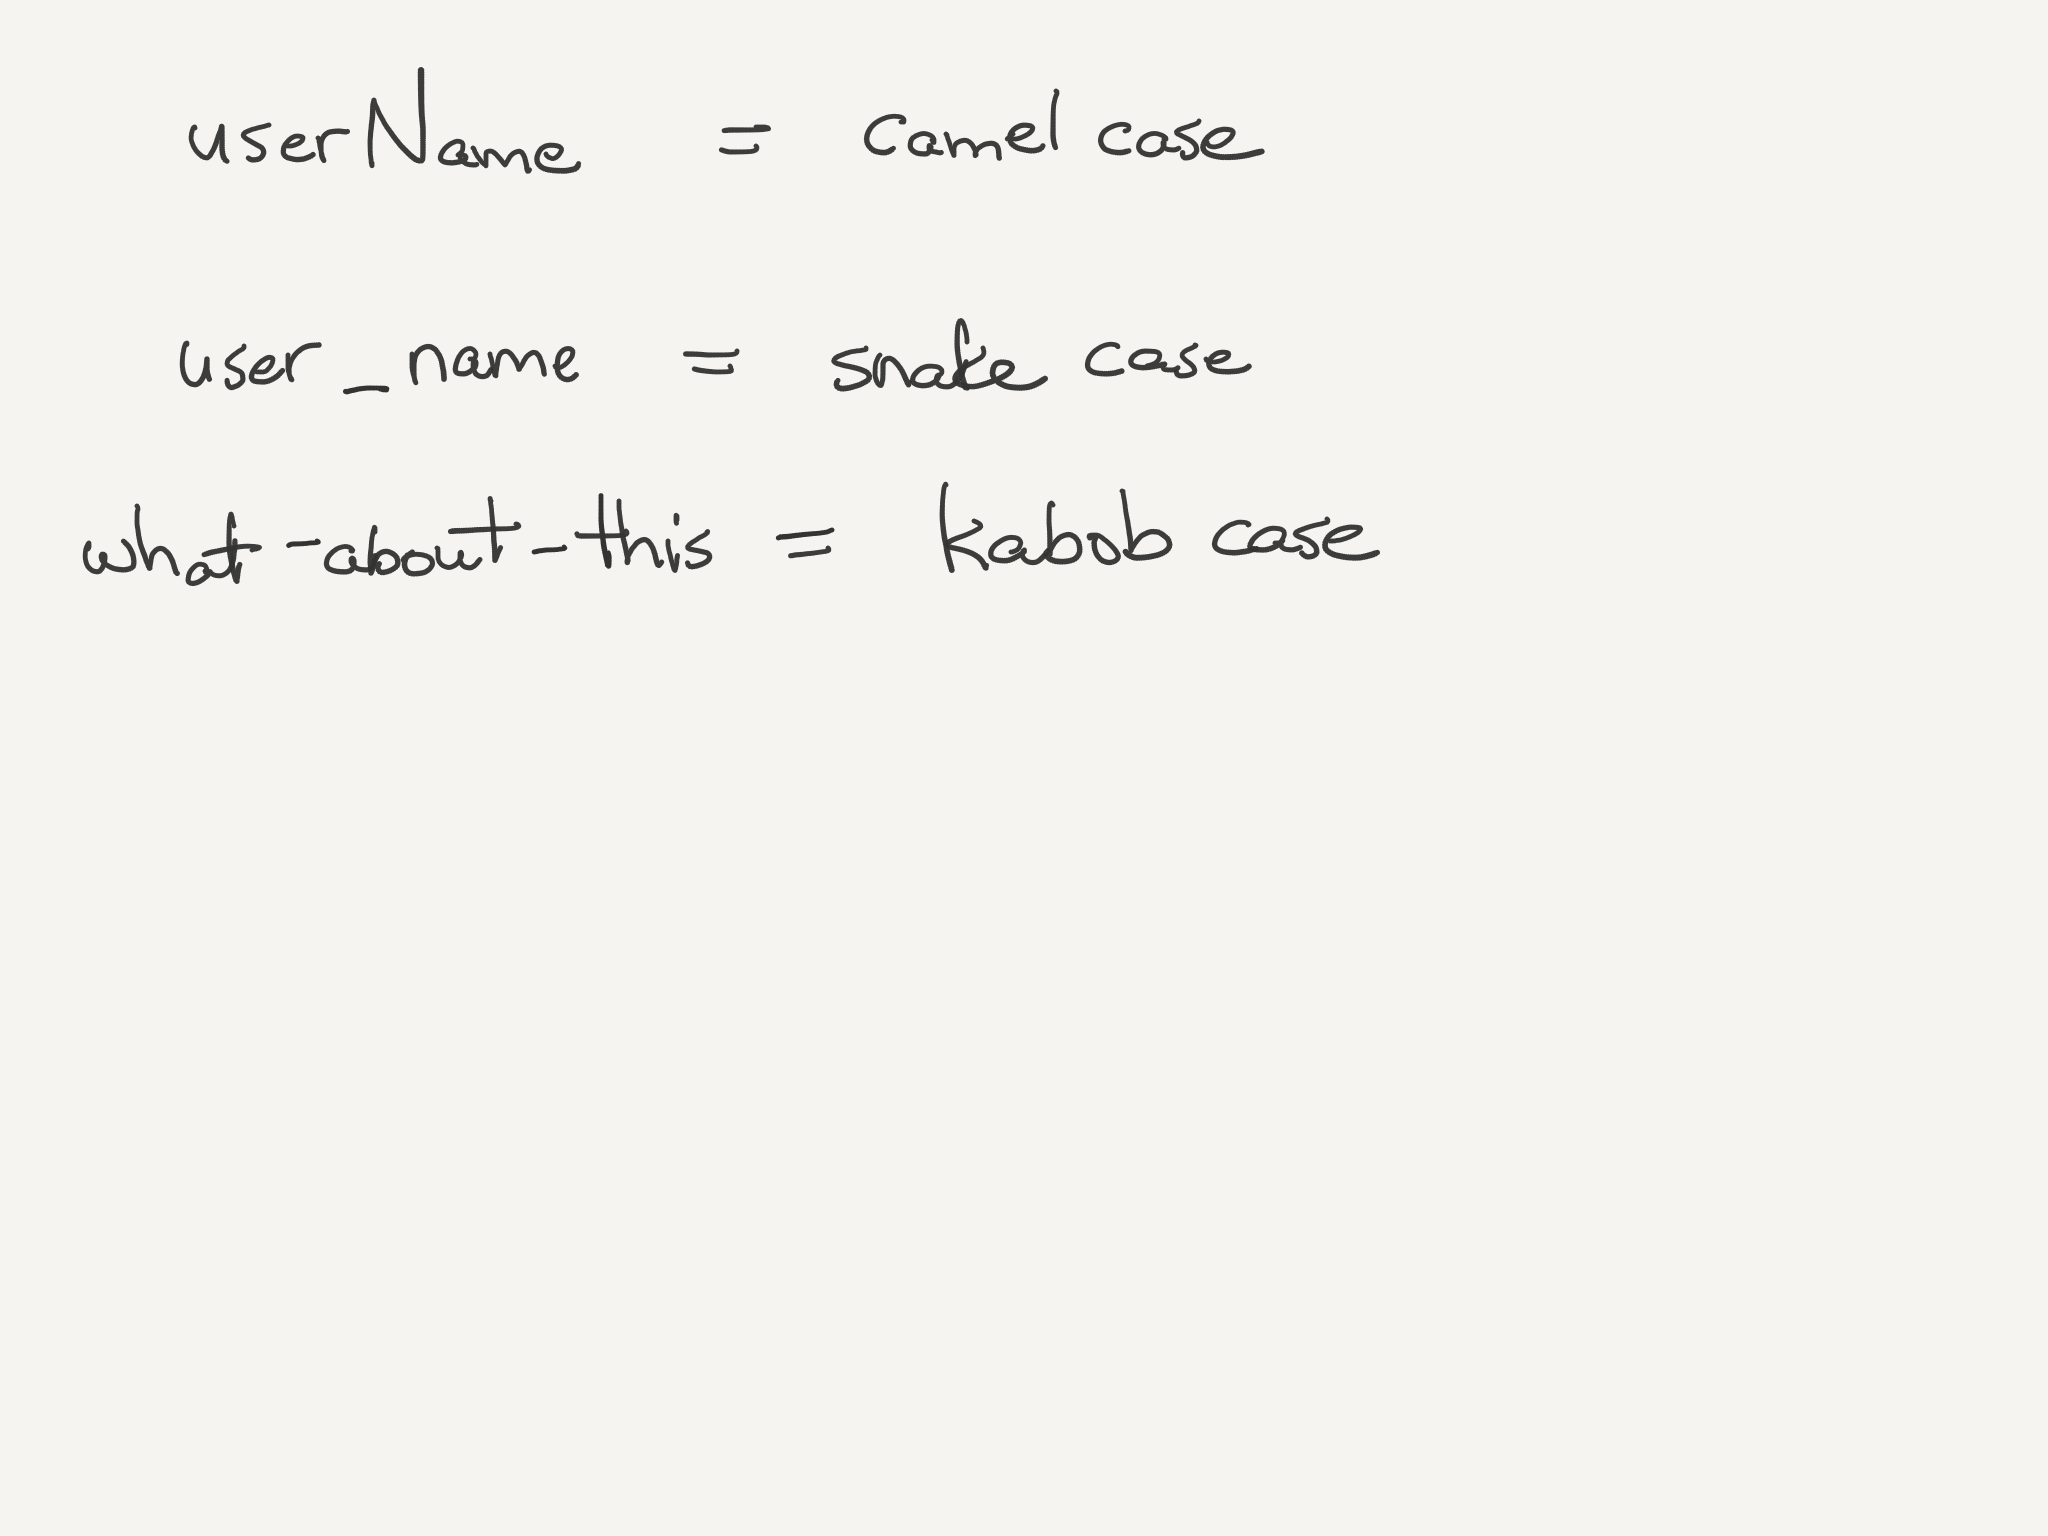 userName = camel case
user_name = snake case
what-about-this = kabob case